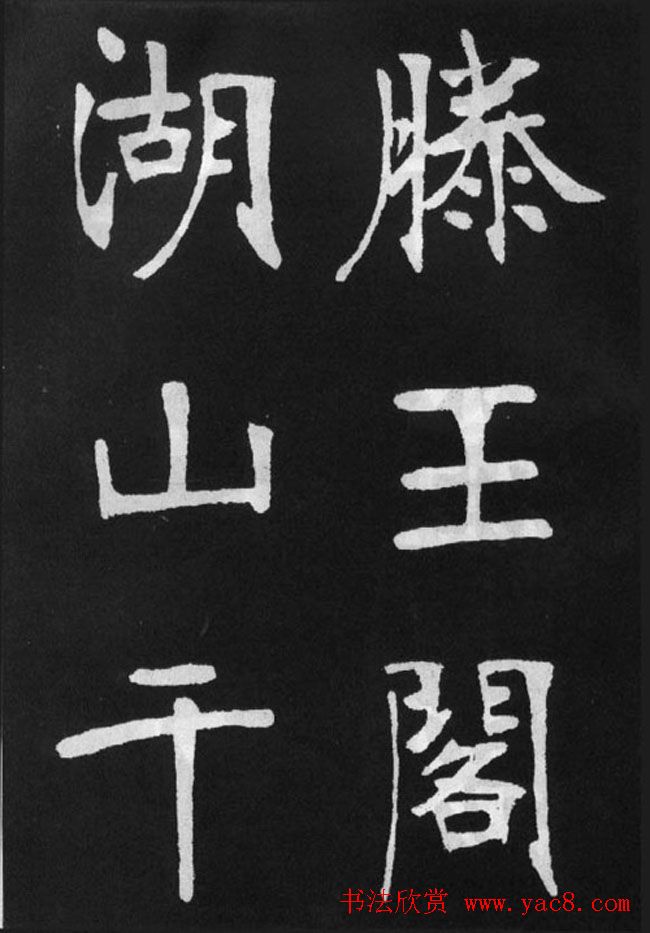 滕王閣
湖山干
书法欣赏 www.yac8.com